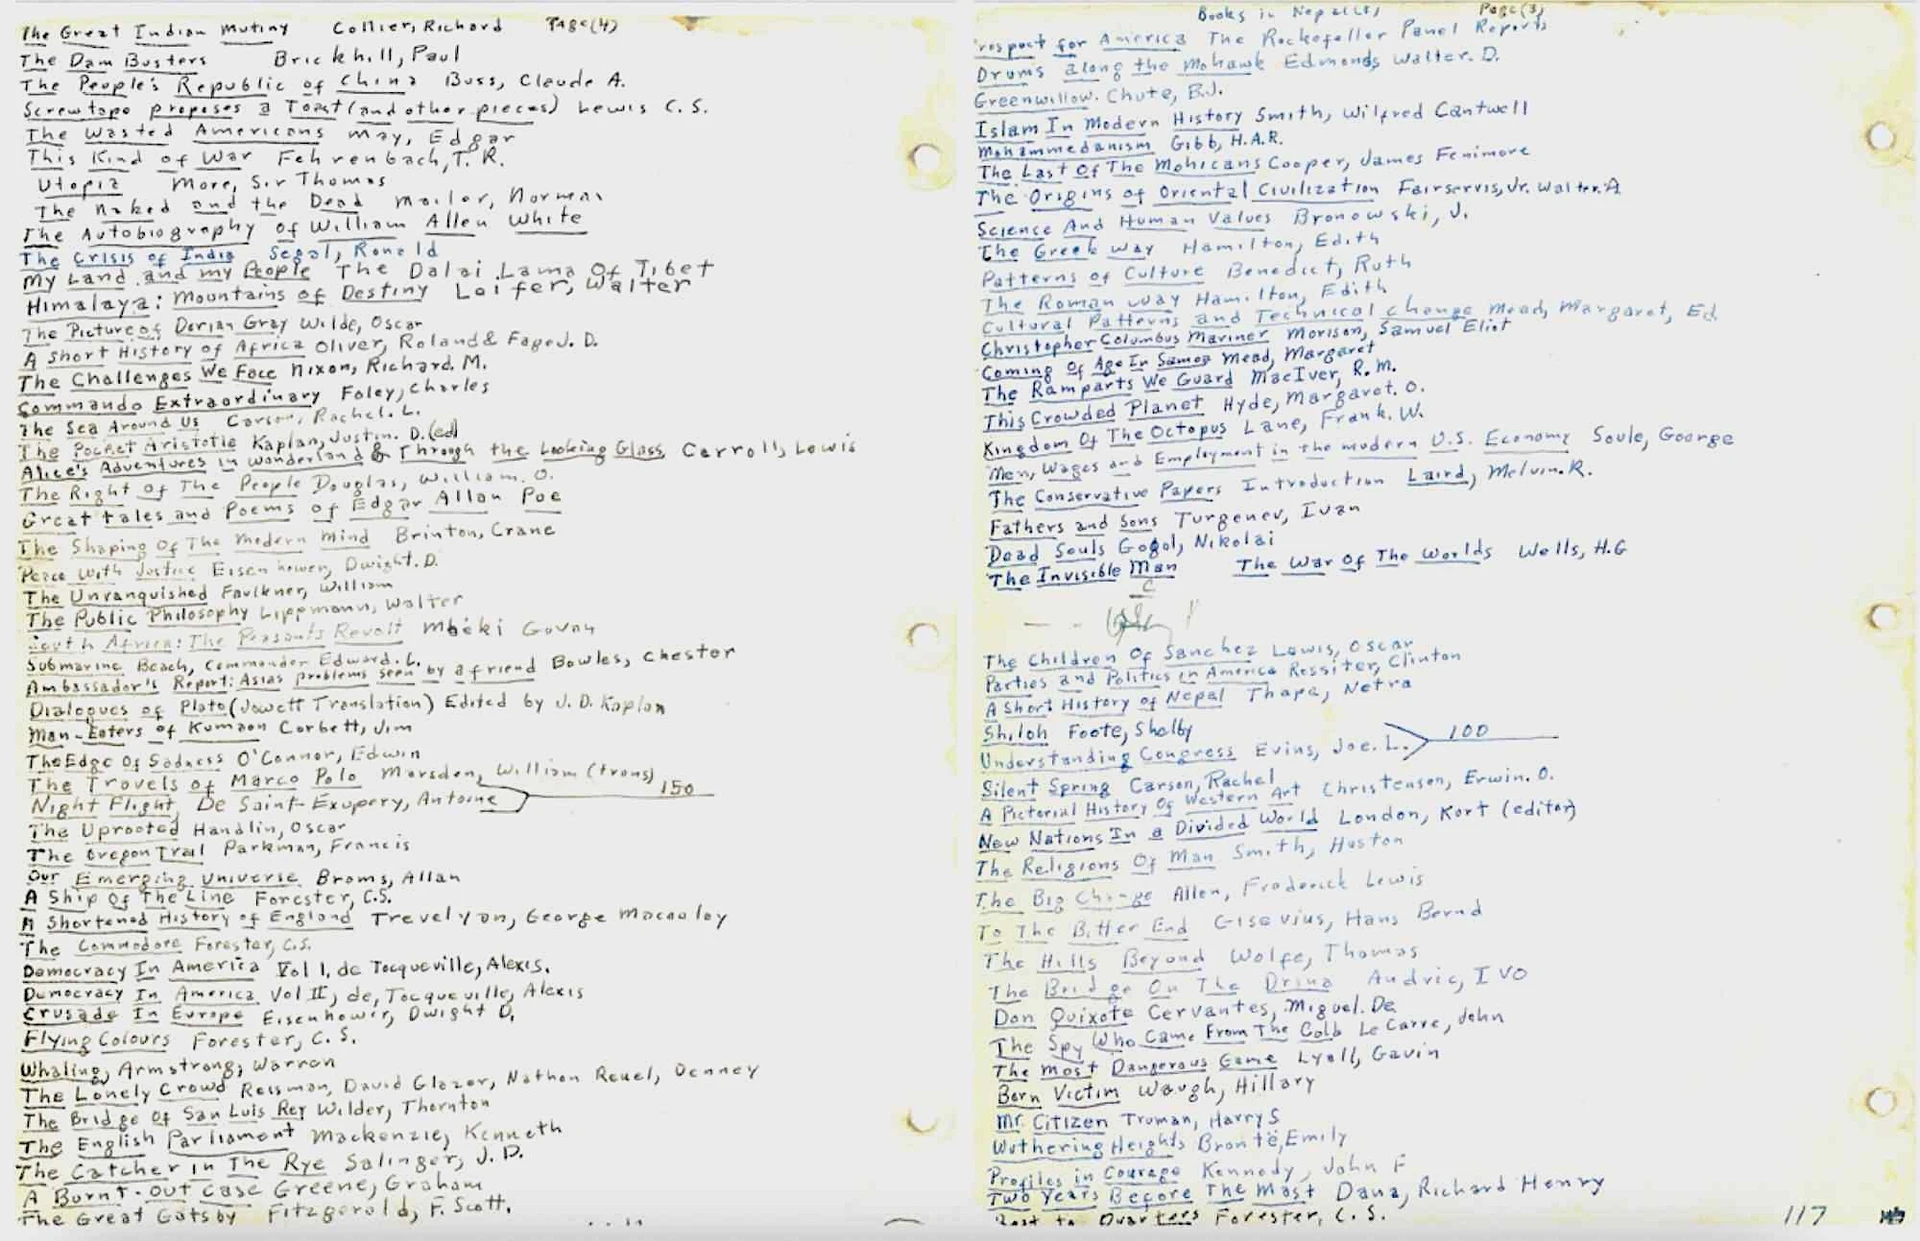 The Great Indian Mutiny Collier, Richard Page(4)
The Dam Busters Brickhill, Paul
The People's Republic of China Buss, Claude A.
Screwtape proposes a Toast (and other pieces) Lewis C. S.
The Wasted Americans May, Edgar
This Kind of War Fehrenbach, T. R.
Utopia More, Sir Thomas
The Naked and the Dead Mailer, Norman
The Autobiography of William Allen White
The Crisis of India Segal, Ronald
My Land and my People The Dalai Lama Of Tibet
Himalaya: Mountains of Destiny Leifer, Walter
The Picture of Dorian Gray Wilde, Oscar
A Short History of Africa Oliver, Roland & Fage J. D.
The Challenges We Face Nixon, Richard M.
Commando Extraordinary Foley, Charles
The Sea Around Us Carson, Rachel. L.
The Pocket Aristotle Kaplan, Justin. D. (ed)
Alice's Adventures in Wonderland & Through the Looking Glass Carroll, Lewis
The Right of The People Douglas, William. O.
Great tales and Poems of Edgar Allan Poe
The Shaping Of The Modern Mind Brinton, Crane
Peace With Justice Eisenhower, Dwight. D.
The Unvanquished Faulkner, William
The Public Philosophy Lippmann, Walter
South Africa: The Peasants Revolt Mbeki Govan
Submarine Beach, Commander Edward. L.
Ambassador's Report: Asias problems seen by a friend Bowles, Chester
Dialogues of Plato (Jowett Translation) Edited by J. D. Kaplan
Man-Eaters of Kumaon Corbett, Jim
The Edge Of Sadness O'Connor, Edwin
The Travels of Marco Polo Marsden, William (trans)
Night Flight, De Saint-Exupery, Antoine 150
The Uprooted Handlin, Oscar
The Oregon Trail Parkman, Francis
Our Emerging Universe Broms, Allan
A Ship Of The Line Forester, C.S.
A Shortened History of England Trevelyan, George Macaulay
The Commodore Forester, C.S.
Democracy In America Vol I, de Tocqueville, Alexis.
Democracy In America Vol II, de, Tocqueville, Alexis
Crusade In Europe Eisenhower, Dwight D.
Flying Colours Forester, C. S.
Whaling, Armstrong, Warren
The Lonely Crowd Reisman, David Glazer, Nathan Reuel, Denney
The Bridge Of San Luis Rey Wilder, Thornton
The English Parliament Mackenzie, Kenneth
The Catcher in The Rye Salinger, J. D.
A Burnt-Out Case Greene, Graham
The Great Gatsby Fitzgerald, F. Scott.
Books in Nepal Page(3)
Prospect for America The Rockefeller Panel Reports
Drums along the Mohawk Edmonds, Walter. D.
Greenwillow. Chute, B.J.
Islam In Modern History Smith, Wilfred Cantwell
Mohammedanism Gibb, H.A.R.
The Last Of The Mohicans Cooper, James Fenimore
The Origins of Oriental Civilization Fairservis, Jr. Walter. A
Science And Human Values Bronowski, J.
The Greek Way Hamilton, Edith
Patterns of Culture Benedict, Ruth
The Roman Way Hamilton, Edith
Cultural Patterns and Technical change Mead, Margaret, Ed.
Christopher Columbus Mariner Morison, Samuel Eliot
Coming Of Age In Samoa Mead, Margaret
The Ramparts We Guard MacIver, R. M.
This Crowded Planet Hyde, Margaret. O.
Kingdom Of The Octopus Lane, Frank. W.
Men, Wages and Employment in the modern U.S. Economy Soule, George
The Conservative Papers Introduction Laird, Melvin. R.
Fathers and Sons Turgenev, Ivan
Dead Souls Gogol, Nikolai
The Invisible Man The War Of The Worlds Wells, H.G
The Children Of Sanchez Lewis, Oscar
Parties and Politics in America Rossiter, Clinton
A Short History of Nepal Thapa, Netra
Shiloh Foote, Shelby
Understanding Congress Evins, Joe. L. 100
Silent Spring Carson, Rachel
A Pictorial History Of Western Art Christensen, Erwin. O.
New Nations In a Divided World London, Kurt (editor)
The Religions Of Man Smith, Huston
The Big Change Allen, Frederick Lewis
To The Bitter End Gisevius, Hans Bernd
The Hills Beyond Wolfe, Thomas
The Bridge On The Drina Andric, IVO
Don Quixote Cervantes, Miguel. De
The Spy Who Came From The Cold Le Carre, John
The Most Dangerous Game Lyall, Gavin
Born Victim Waugh, Hillary
Mr. Citizen Truman, Harry S
Wuthering Heights Brontë, Emily
Profiles in Courage Kennedy, John F
Two Years Before The Mast Dana, Richard Henry
Beat to Quarters Forester, C. S.
117